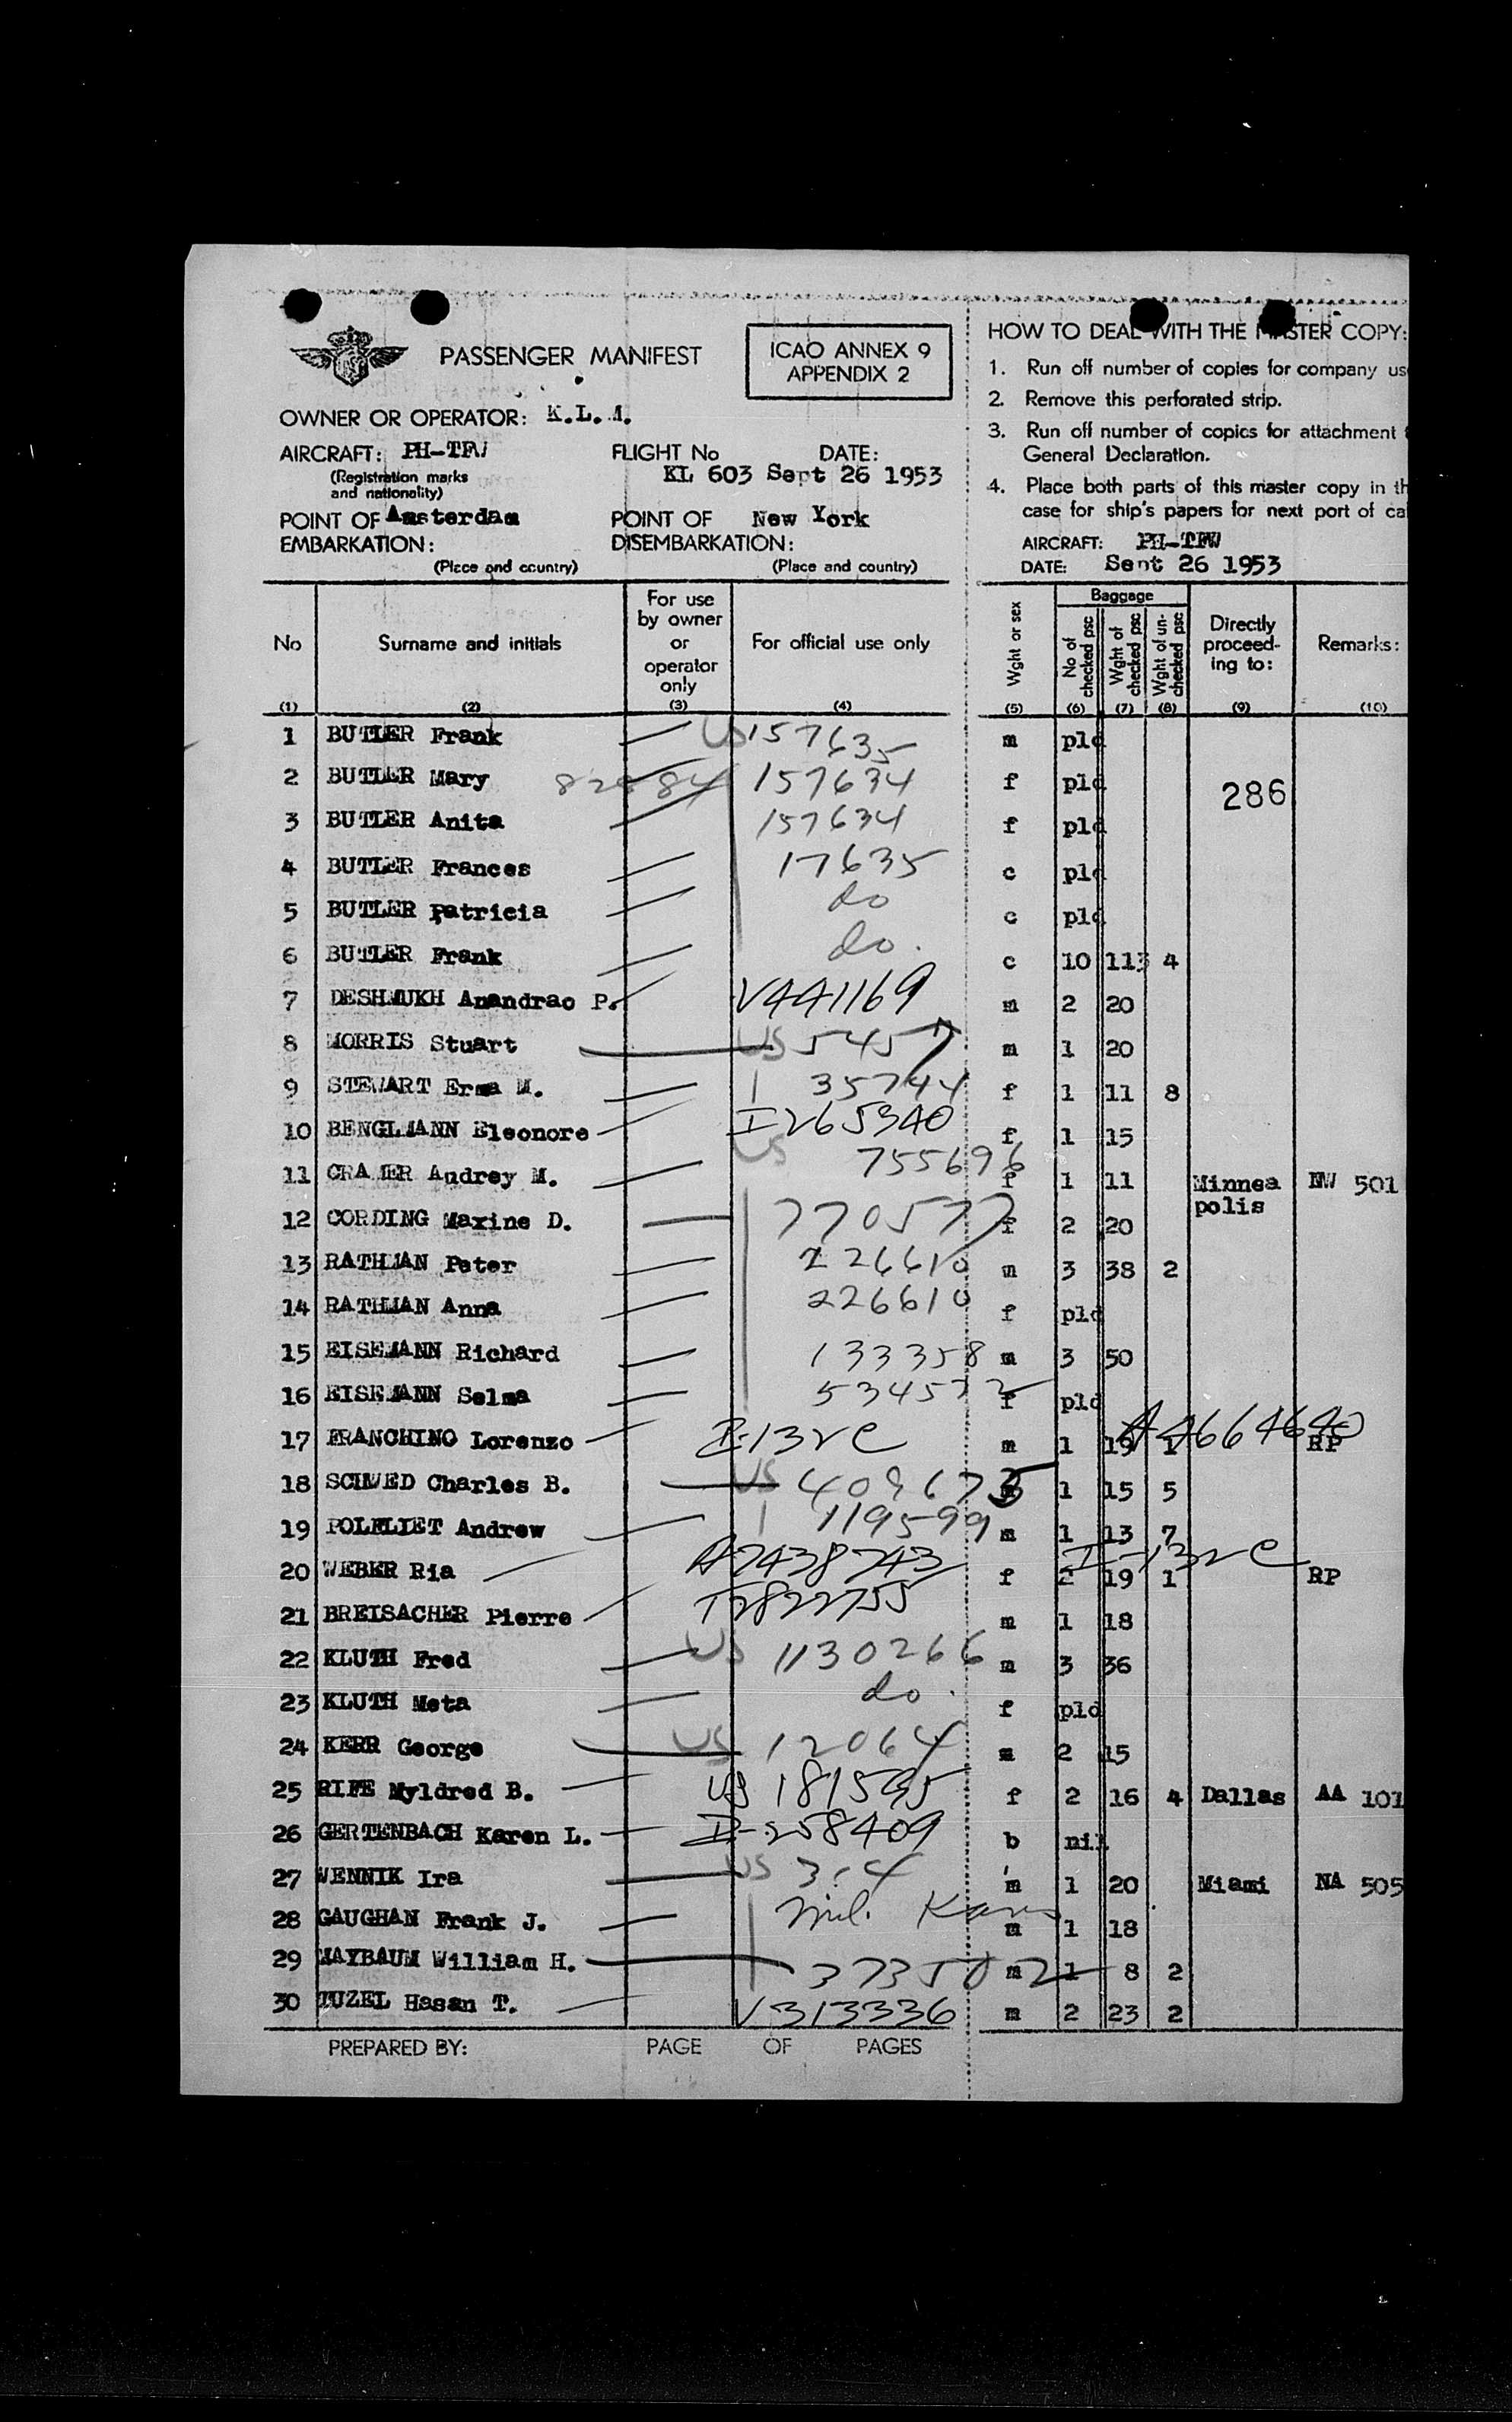 PASSENGER MANIFEST
ICAO ANNEX 9
APPENDIX 2
OWNER OR OPERATOR: K.L.M.
AIRCRAFT: PH-TFW
(Registration marks
and nationality)
FLIGHT No DATE:
KL 603 Sept 26 1953
POINT OF Amsterdam
EMBARKATION:
(Place and country)
POINT OF New York
DISEMBARKATION:
(Place and country)
HOW TO DEAL WITH THE MASTER COPY:
1. Run off number of copies for company
2. Remove this perforated strip.
3. Run off number of copies for attachment
General Declaration.
4. Place both parts of this master copy in
case for ship's papers for next port of
AIRCRAFT: PH-TFW
DATE: Sept 26 1953
No Surname and initials For use by owner or operator only For official use only Wght or sex Baggage No of checked psc Wght of checked psc Wght of un-checked psc Directly proceed-ing to: Remarks:
(1) (2) (3) (4) (5) (6) (7) (8) (9) (10)
1 BUTLER Frank US 157635 m pld
2 BUTLER Mary 157634 f pld 286
3 BUTLER Anita 157634 f pld
4 BUTLER Frances 17635 c pld
5 BUTLER Patricia do c pld
6 BUTLER Frank do. c 10 113 4
7 DESHMUKH Anandrao P. V441169 m 2 20
8 MORRIS Stuart US 5457 m 1 20
9 STEWART Erma M. 35744 f 1 11 8
10 BENGLMANN Eleonore I265340 f 1 15
11 CRAMER Audrey M. US 755696 f 1 11 Minnea NW 501
polis
12 CORDING Maxine D. 770577 f 2 20
13 RATHMAN Peter 226610 m 3 38 2
14 RATHMAN Anna 226610 f pld
15 EISEMANN Richard 133358 m 3 50
16 EISEMANN Selma 534572 f pld
17 FRANCHINO Lorenzo m 1 19 1 A4664640 RP
18 SCHWED Charles B. US 409673 1 15 5
19 POLFLIET Andrew 119599 m 1 13 7
20 WEBER Ria A7438743 f 2 19 1 RP
21 BREISACHER Pierre T2822755 m 1 18
22 KLUTH Fred US 1130266 m 3 36
23 KLUTH Meta do. f pld
24 KERR George US 12064 m 2 15
25 RIFE Myldred B. US 181595 f 2 16 4 Dallas AA 101
26 GERTENBACH Karen L. I-258409 b nil
27 WENNIK Ira US m 1 20 Miami NA 505
28 GAUGHAN Frank J. m 1 18
29 MAYBAUM William H. m 1 8 2
30 TUZEL Hasan T. V313336 m 2 23 2
PREPARED BY: PAGE OF PAGES